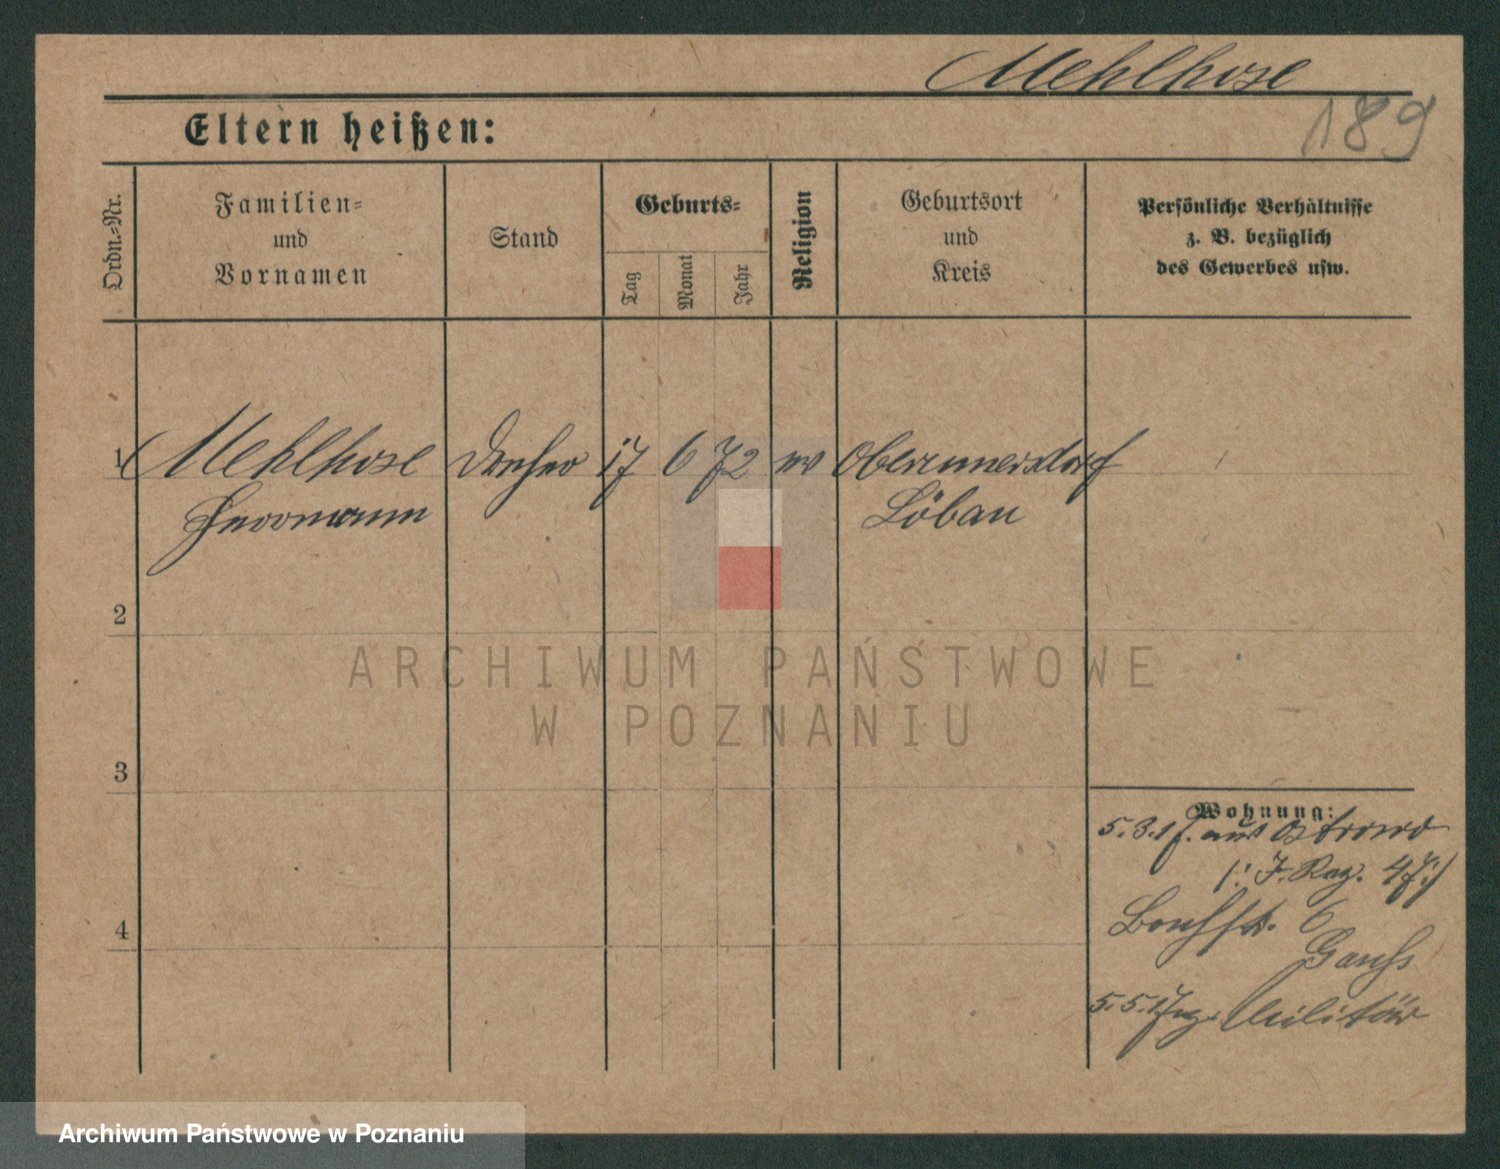 Mehlhose
189
Eltern heißen:
Ordn.-Nr.
Familien-
und
Vornamen
Stand
Geburts-
Tag
Monat
Jahr
Religion
Geburtsort
und
Kreis
Persönliche Verhältnisse
z. B. bezüglich
des Gewerbes usw.
1 Mehlhose Dreher 17 6 72 ev Oberrunnersdorf
Herrmann Löbau
2
ARCHIWUM PAŃSTWOWE
W POZNANIU
3
Wohnung:
5.3.17. aus Ostrowo
4
6
5.5.17 z. Militär
Archiwum Państwowe w Poznaniu